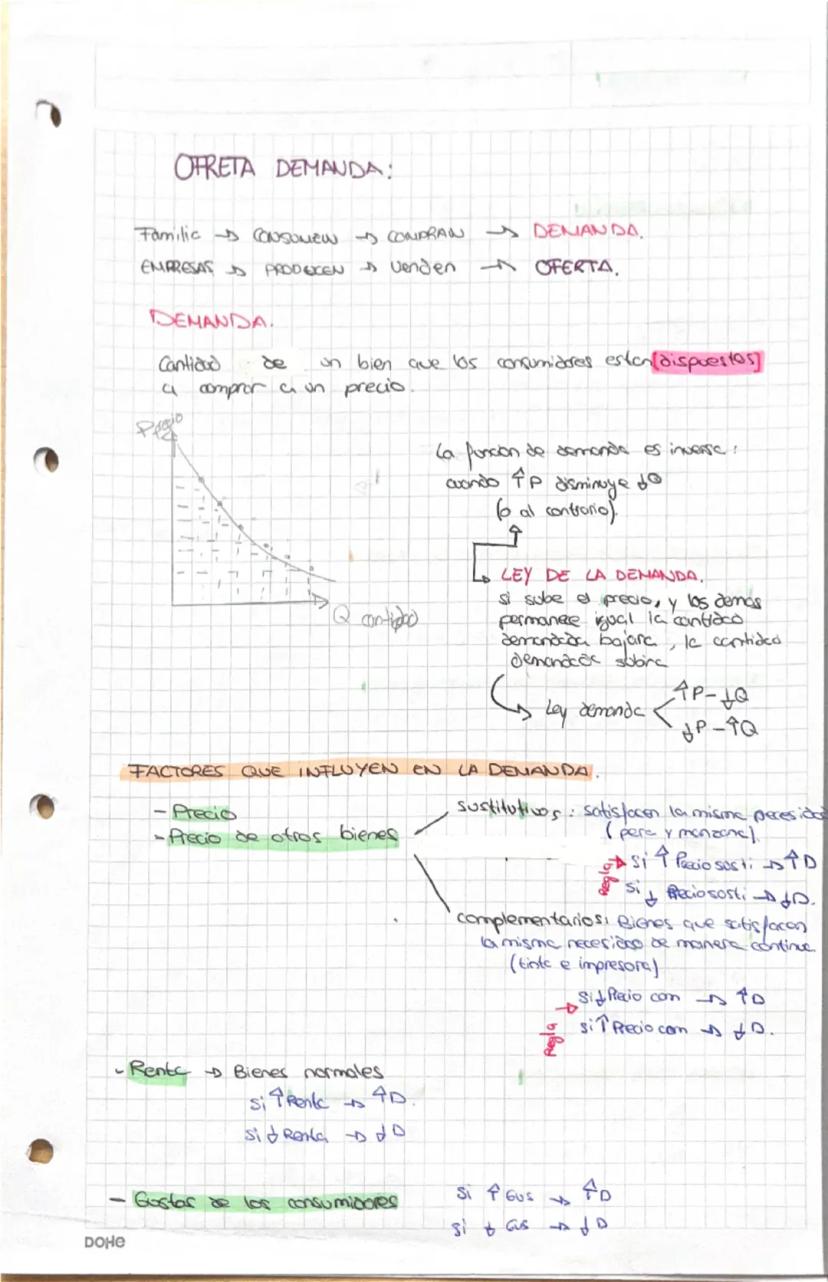 OFRETA DEMANDA:
Familia → CONSUMEN → COMPRAN → DEMANDA.
EMPRESAS → PRODUCEN → Venden → OFERTA.
DEMANDA.
Cantidad de un bien que los consumidores estan [dispuestos]
a comprar a un precio.
Precio
Q cantidad
La función de demanda es inversa:
cuando ↑P disminuye ↓Q
(o al contrario).
LEY DE LA DEMANDA.
si sube el precio, y los demas
permanece igual la cantidad
demandada bajara, la cantidad
demandada subira
Ley demanda
↑P-↓Q
↓P-↑Q
FACTORES QUE INFLUYEN EN LA DEMANDA.
- Precio
- Precio de otros bienes
sustitutivos: satisfacen la misma necesidad
(pera y manzana).
Regla
si ↑ Precio susti → ↑D
si ↓ Precio susti → ↓D.
complementarios: Bienes que satisfacen
la misma necesidad de manera continua
(tinta e impresora)
Regla
si ↓ Precio com → ↑D
si ↑ Precio com → ↓D.
- Renta → Bienes normales
si ↑ Renta → ↑D.
si ↓ Renta → ↓D
- Gustos de los consumidores
si ↑ Gus → ↑D
si ↓ Gus → ↓D
DOHE